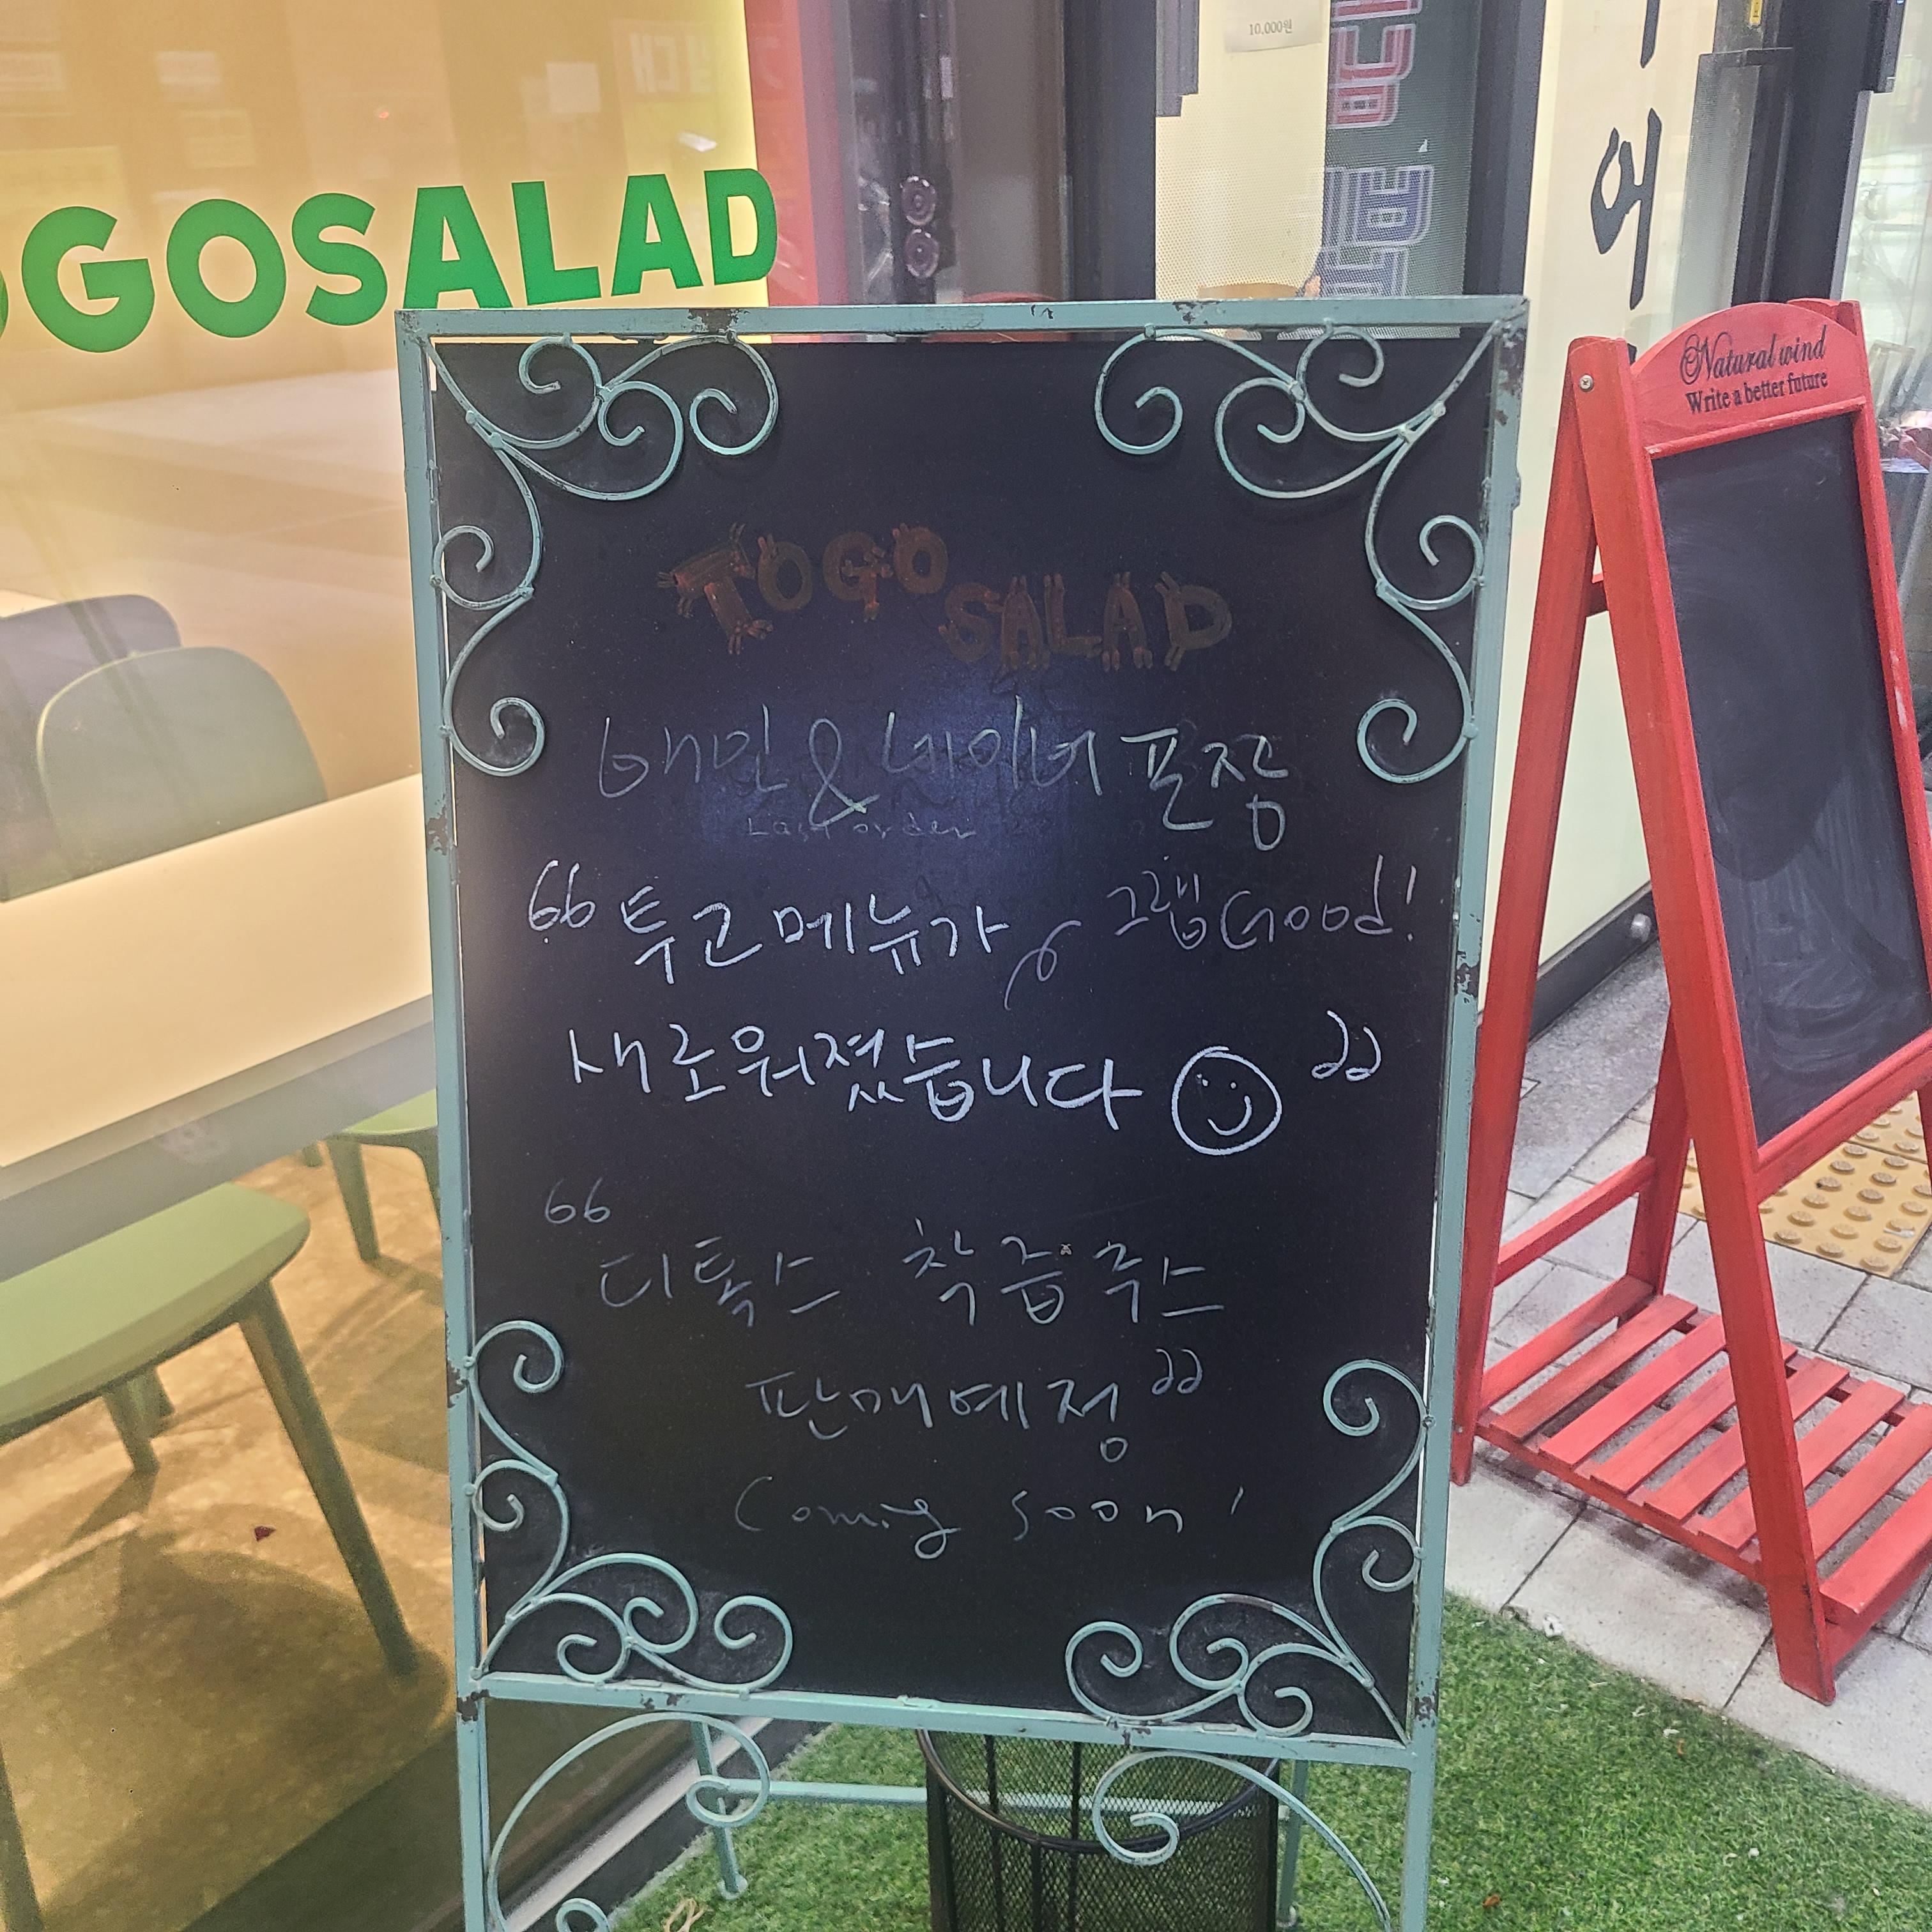 10,000원
GOSALAD
Natural wind
Write a better future
TOGO
SALAD
배민 & 네이버 포장
Last order
“ 투고 메뉴가 그랩 Good!
새로워졌습니다 ”
“
디톡스 착즙주스
판매예정 ”
Coming soon!